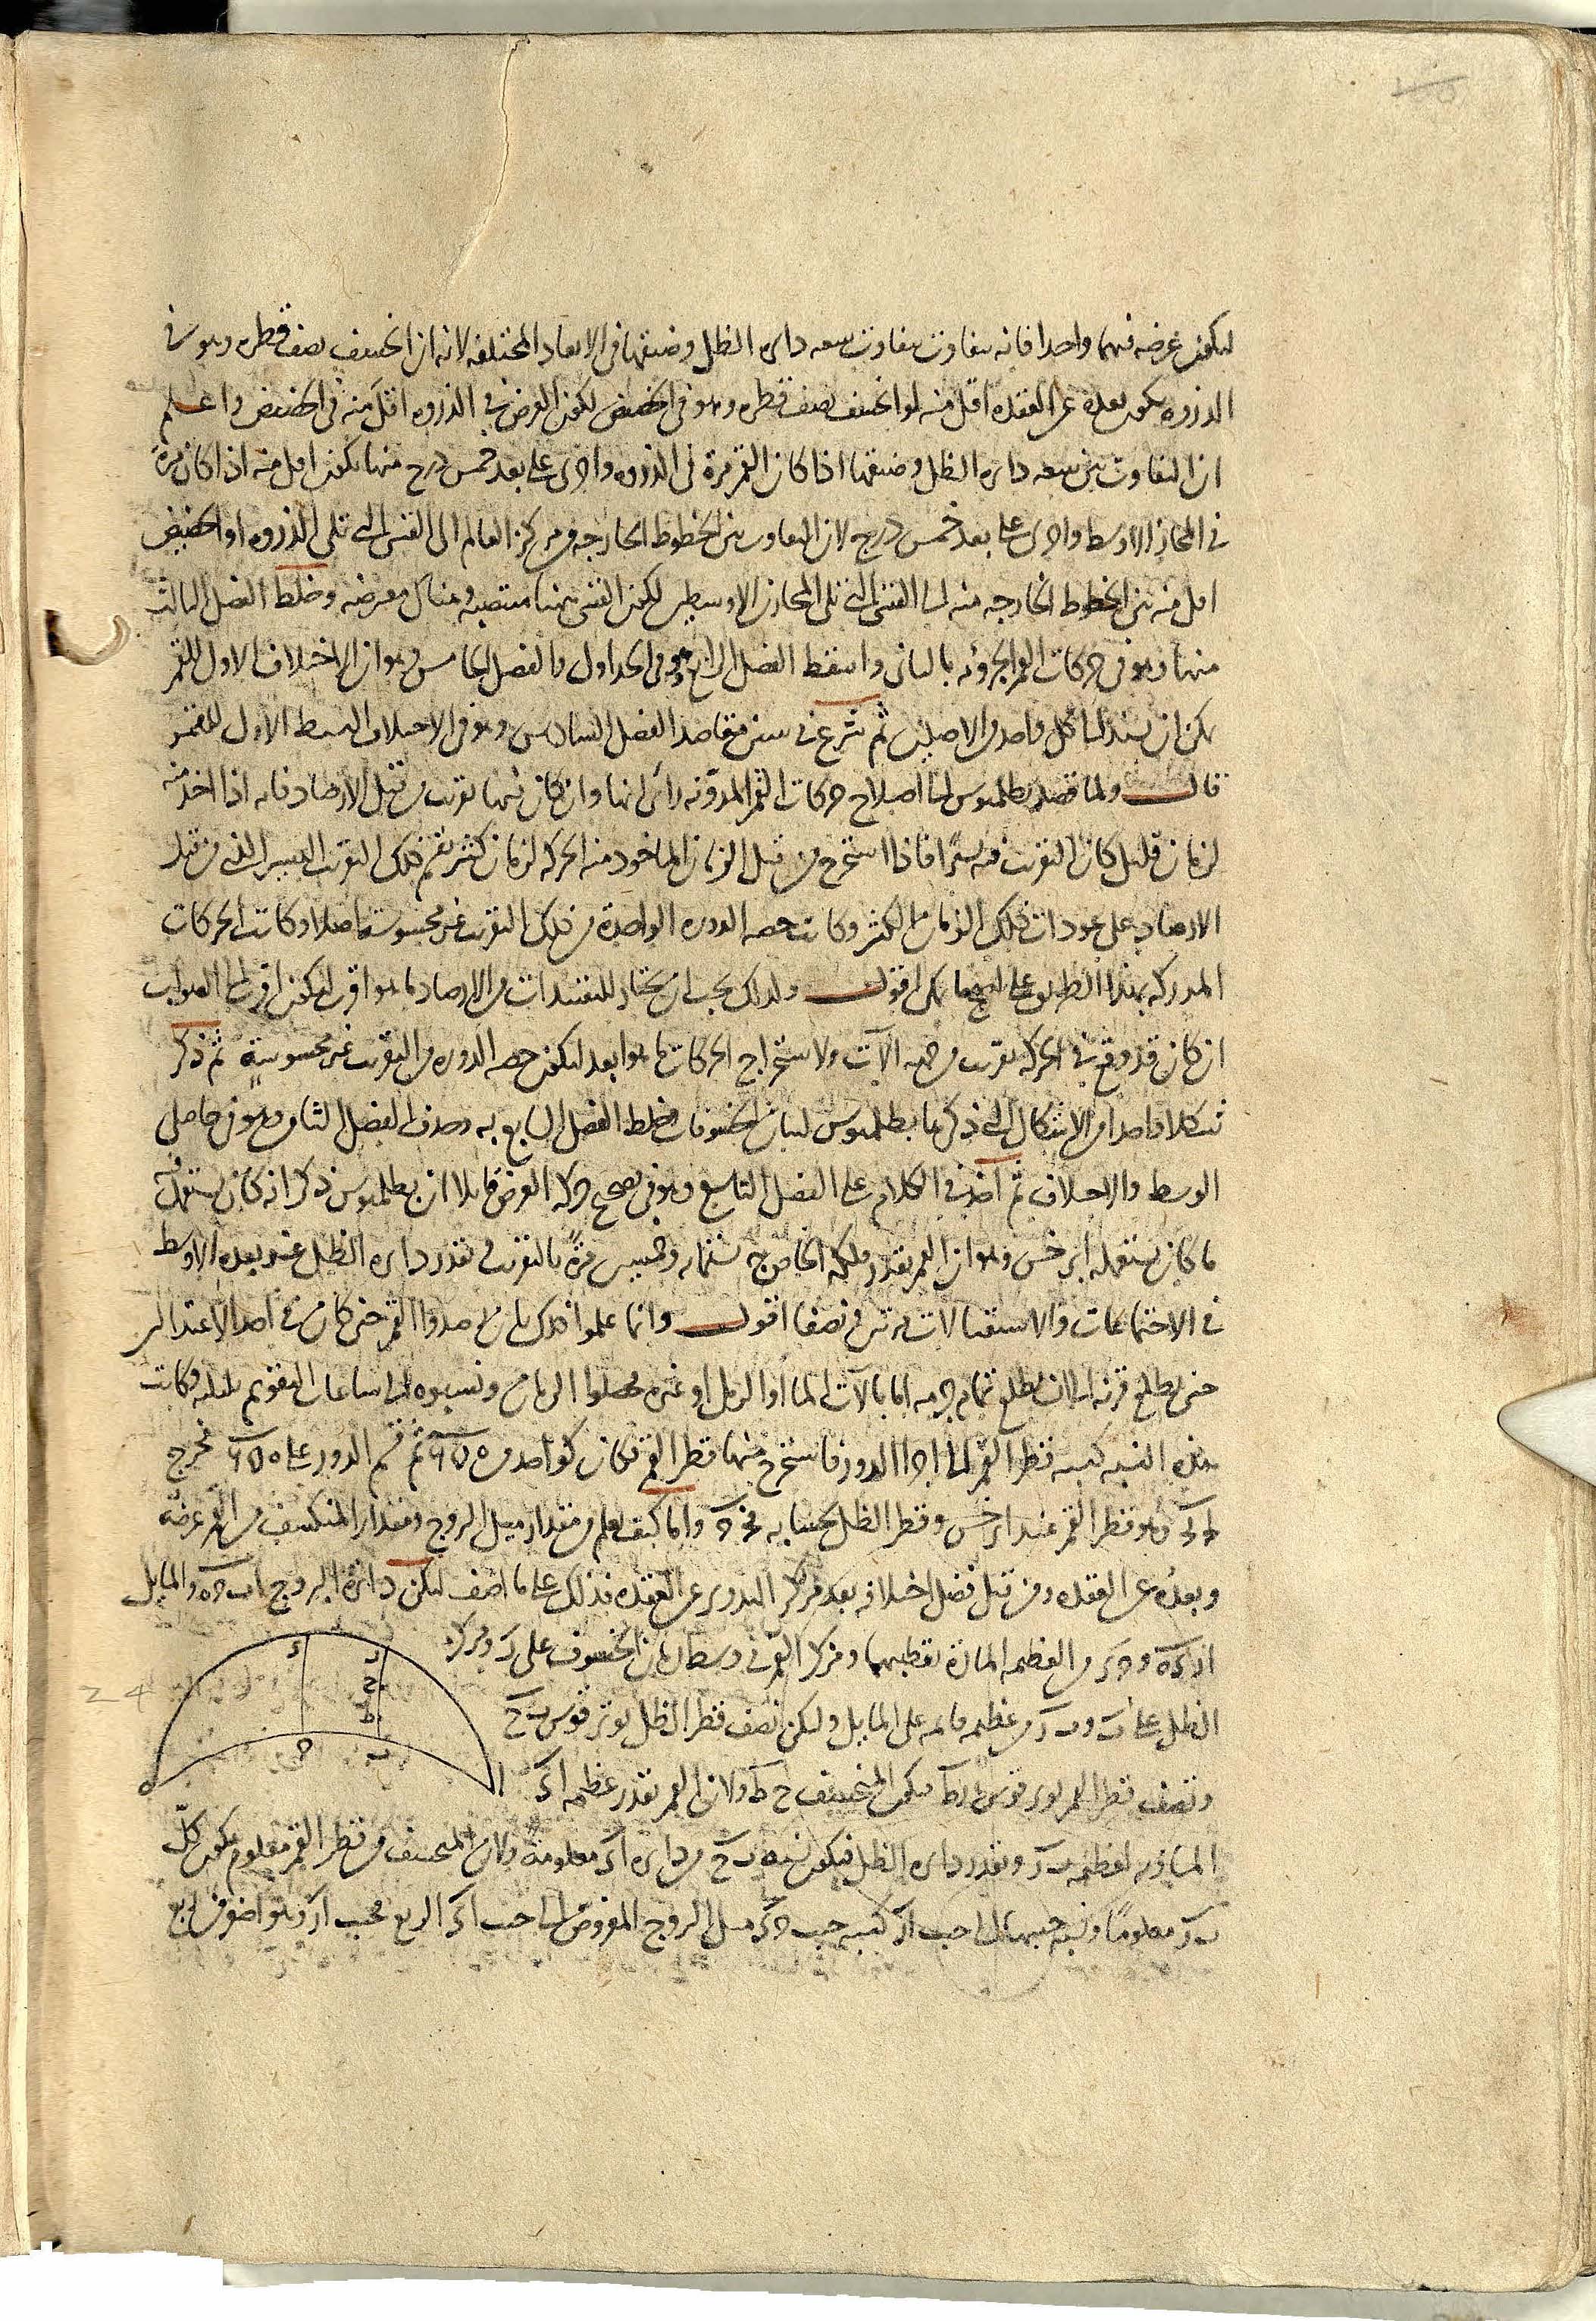 ليكون عرضه فيهما واحدا فانه يتفاوت بتفاوت سعه دايره الظل وضيقها في الابعاد المختلفه لانه ان انخسف نصف قطره وهو في
الذروه يكون بعده عن العقده اقل منه لو انخسف نصف قطره وهو في الحضيض لكون العرض في الذروه اقل منه في الحضيض واعلم
ان التفاوت بين سعه دايره الظل وضيقها اذا كان القمر مرة في الذروه واخرى على بعد خمس درج منها يكون اقل منه اذا كان مرة
في المجاز الاوسط واخرى على بعد خمس درج لان التفاوت بين الخطوط الخارجه من مركز العالم الى القسي التي تلي الذروه او الحضيض
اقل منه بين الخطوط الخارجه منه الى القسي التي تلي المجاز الاوسط لكون القسي ههنا منتصبه وهناك معترضه وخلط الفصل الثالث
منها وهو في حركات القمر الجزوئه بالثاني واسقط الفصل الرابع وهو في الجداول والفصل الخامس وهو ان الاختلاف الاول للقمر
يمكن ان يستند الى كل واحد من الاصلين ثم شرع في مقاصد الفصل السادس وهو في الاختلاف البسيط الاول للقمر
قال ولما قصد بطلميوس الى اصلاح حركات القمر المدونه رأى انها وان كان فيها تقريب من قبل الارصاد فانه اذا اخذ منه
لزمان قليل كان التقريب فيه يسيرا فاذا استخرج من قبل الزمان الماخوذ منه الحركه لزمان كثير يقسم ذلك التقريب اليسير الذي من قبل
الارصاد على عودات ذلك الزمان الكثير وكانت حصه الدوره الواحدة من ذلك التقريب غير محسوسة اصلا وكانت الحركات
المدركه بهذا الطريق على اصح ما يمكن اقول ولذلك يجب ان يختار للتقييدات من الارصاد ما هو اقرب ليكون اقرب الى الصواب
ان كان قد وقع في الحركه تقريب من جهه الآلات ولاستخراج الحركات ما هو ابعد ليكون حصه الدوره من التقريب غير محسوسة ثم ذكر
شكلا واحدا من الاشكال التي ذكرها بطلميوس لبيان الخسوفات وخلط الفصل السابع به وحذف الفصل الثامن وهو في حاصلي
الوسط والاختلاف ثم اخذ في الكلام على الفصل التاسع وهو في تصحيح حركه العرض قايلا ان بطلميوس ذكر انه كان يستعمل فيه
ما كان يستعمله ابرخس وهو ان القمر يقدر فلكه الخاص به ستمايه وخمسين مرة بالتقريب ويقدر دايره الظل عند بعده الاوسط
في الاجتماعات والاستقبالات مرتين ونصفا اقول وانما علموا ذلك بان رصدوا القمر حين كان في احد الاعتدالين
حين يطلع قرنه الى ان يطلع تمام جرمه اما بآلات الما او الرمل او غيره فحصلوا الزمان ونسبوه الى ساعات التقويم بليله وكانت
هذه النسبه كنسبه قطر القمر الى اجزا الدور فاستخرج منها قطر القمر فكان كواحد من ٦٥٠ ثم قسم الدور على ٦٥٠ فخرج
وهو قطر القمر عند ابرخس وقطر الظل بحسابه واما كيف يعلم من مقدار ميل البروج ومقدار المنكسف من القمر عرضه
وبعده عن العقده ومن قبل فضل اختلافه بعد مركز التدوير عن العقده فذلك على ما اصف ليكن دائرة البروج اب ج ه والمايل
ا ر د ه و ج د من العظيمه المارة بقطبيهما ومركز القمر في وسط زمان الخسوف على ر ومركز
الظل على ب و ب ر من عظيمه قايمه على المايل وليكن نصف قطر الظل يوتر قوس ب ح
ونصف قطر القمر يوتر قوس ر ط فيكون المنخسف ح ط ولان القمر يقدر عظيمه ا د
المساويه لعظيمه ب ر ويقدر دايره الظل فيكون نسبه ب ح من دايره ا د معلومة ولان المنخسف من قطر القمر معلوم يكون كل
ب ر معلوما ونسبه جيبها الى جيب ا ر كنسبه جيب ج د ميل البروج المفروض الى جيب ا د الربع فجيب ا ر وهو